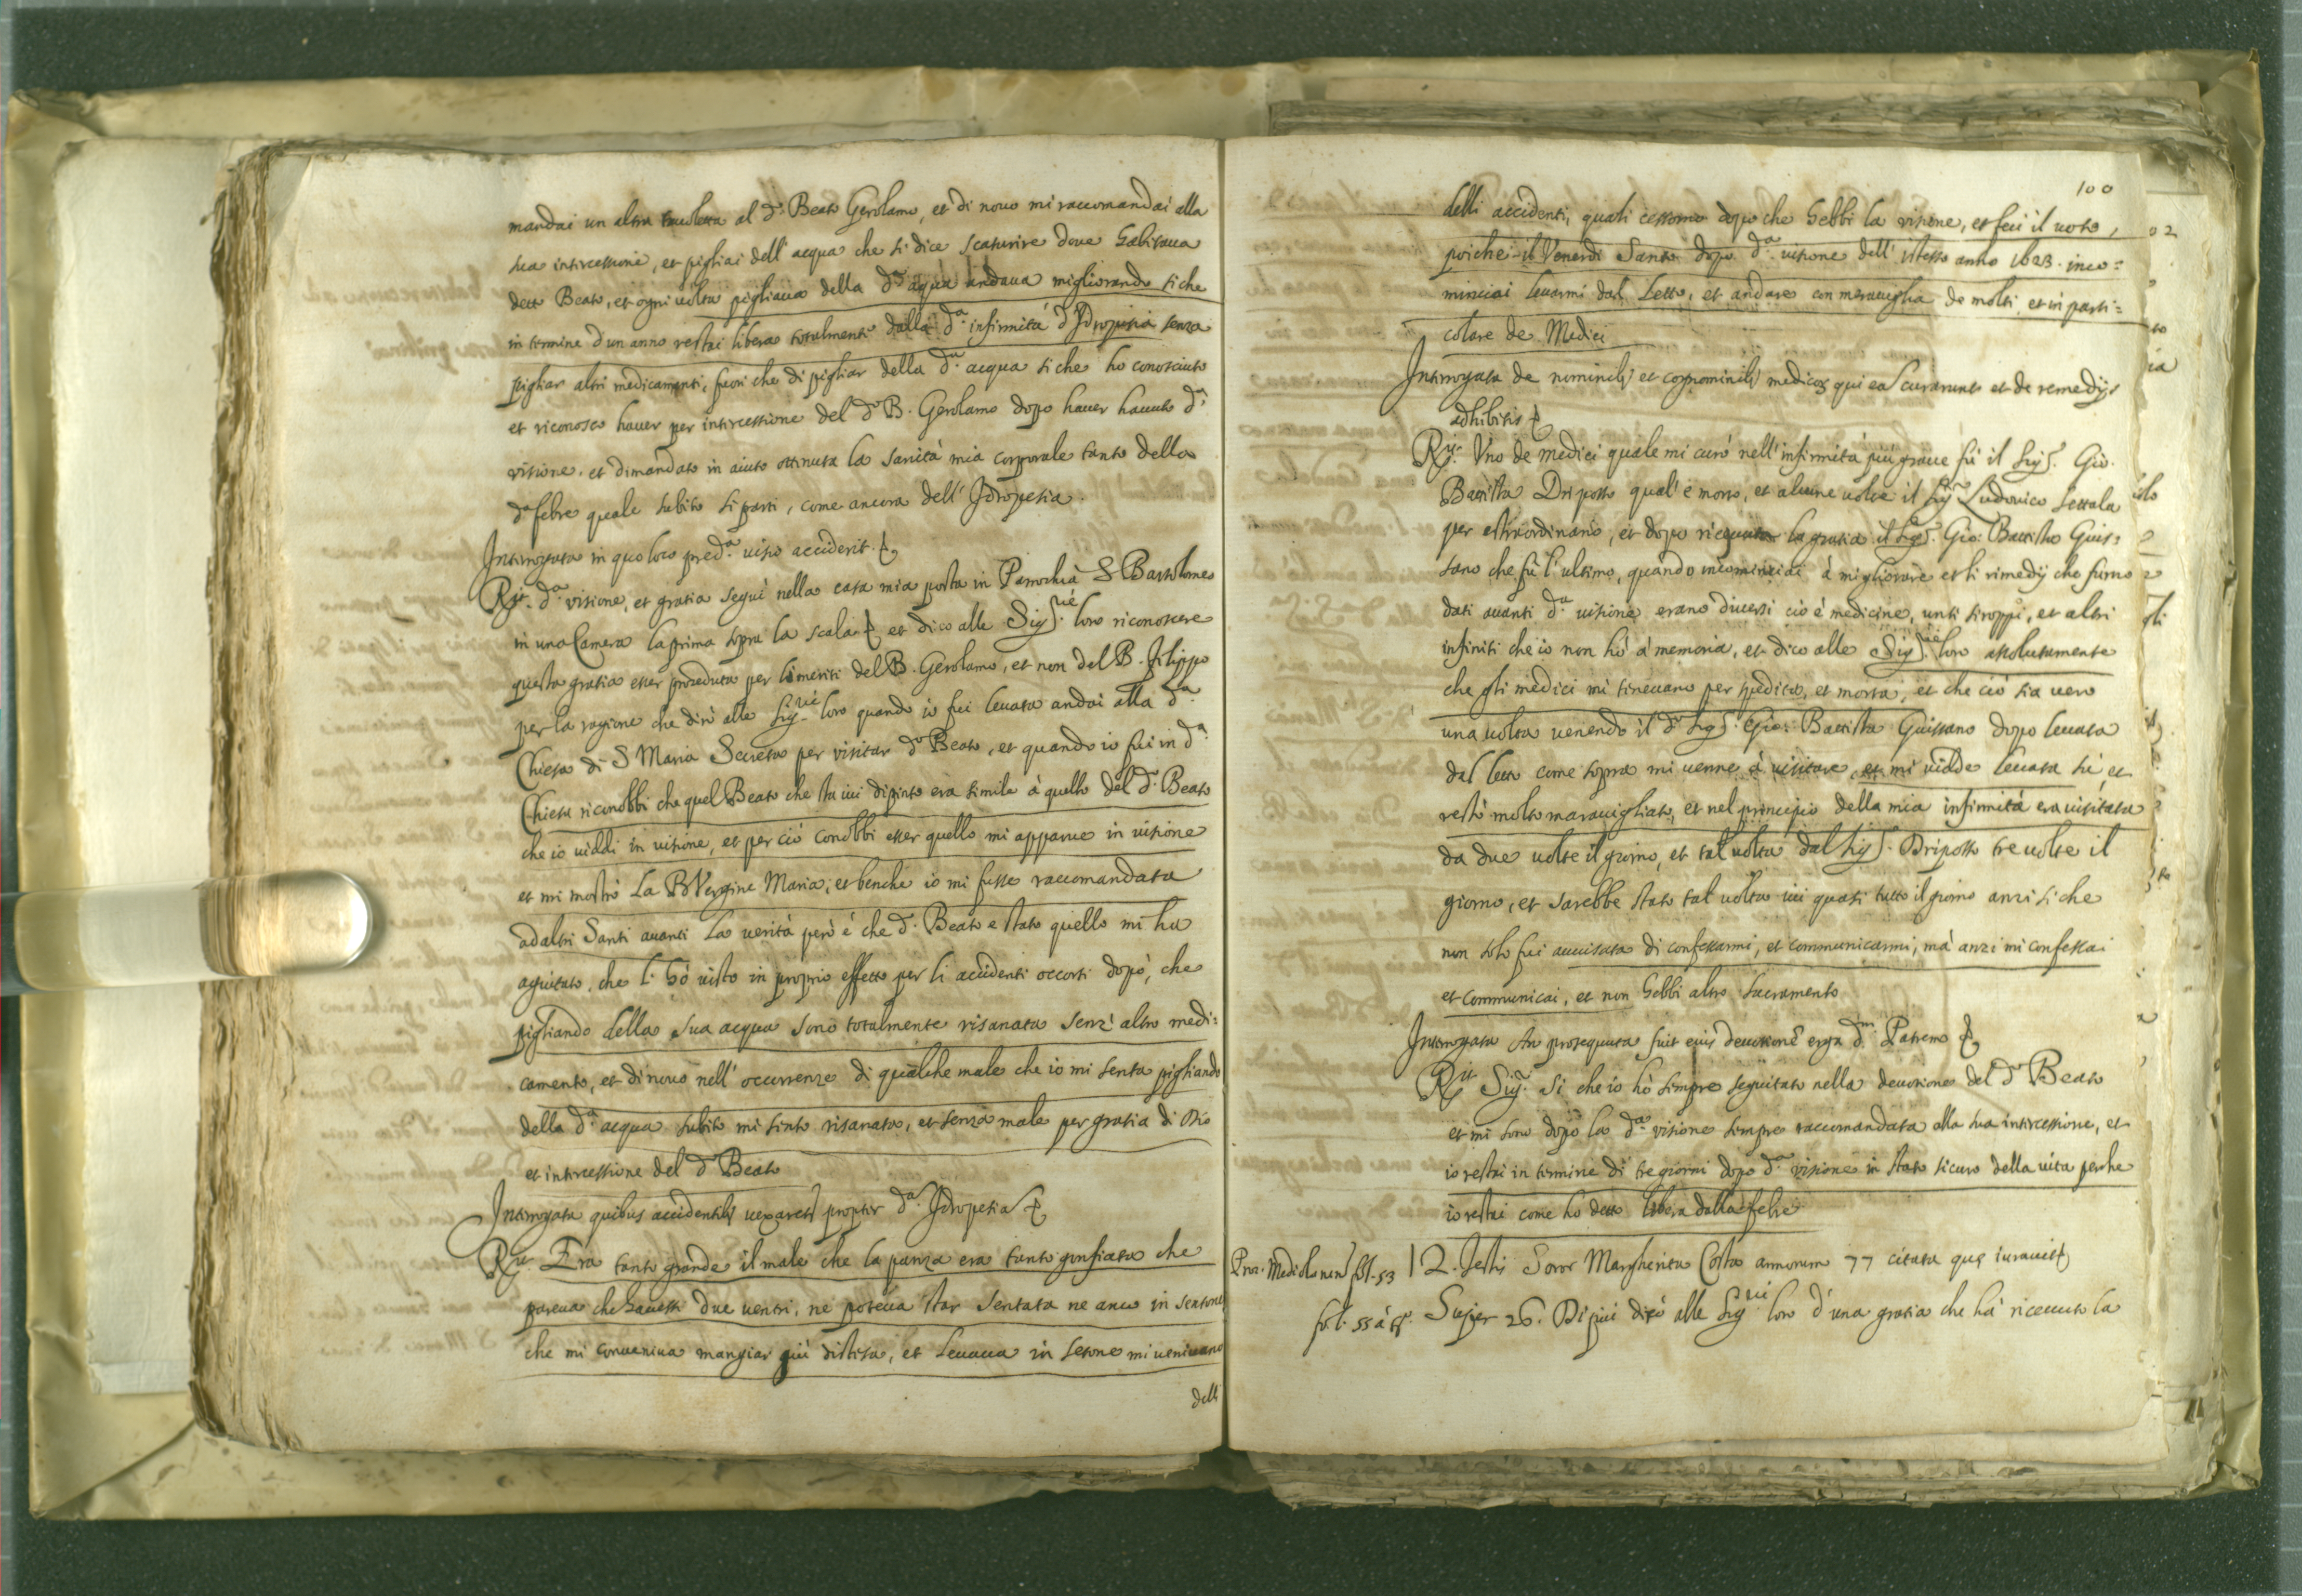 mandai un altra tavoletta al d.º Beato Gerolamo, et di novo mi raccomandai alla
sua intercessione, et pigliai dell' acqua che si dice scaturire dove habitava
detto Beato, et ogni volta pigliava della d.ª aqua andava migliorando si che
in termine d'un anno restai libera totalmente dalla d.ª infirmità d'Idropisia senza
pigliar altri medicamenti, fuori che di pigliar della d.ª acqua si che ho conosciuto
et riconosco haver per intercessione del d.º B. Gerolamo dopo haver havuto d.ª
visione, et dimandato in aiuto ottenuta la sanità mia corporale tanto della
d.ª febre quale subito si partì, come ancora dell' Idropesia.
Interrogata in quo loco pred.ª visio acciderit.
R.it d.ª visione, et gratia seguì nella casa mia posta in Parochia S Bartolomeo
in una Camera la prima sopra la scala et dico alle Sig.rie loro riconoscere
questa gratia esser proceduta per li meriti del B. Gerolamo, et non del B. Filippo
per la ragione che dirò alle Sig.rie loro quando io fui levata andai alla d.ª
Chiesa di S Maria Secreta per visitar d.º Beato, et quando io fui in d.ª
Chiesa riconobbi che quel Beato che sta ivi dipinto era simile à quello del d.º Beato
che io viddi in visione, et per ciò conobbi esser quello mi apparve in visione
et mi mostrò La B Vergine Maria, et benche io mi fusse raccomandata
ad altri Santi avanti La verità però è che d.º Beato e stato quello mi ha
agiutato, che l' hò visto in proprio effetto per li accidenti occorsi dopò, che
pigliando della sua acqua sono totalmente risanata senz' altro medi=
camento, et di novo nell' occurrenze di qualche male che io mi senta pigliando
della d.ª acqua subito mi sento risanata, et senza male per gratia di Dio
et intercessione del d.º Beato
Interrogata quibus accidentib; vexaret propter d.ª Idropesia
R.it Era tanto grande il male che la panza era tanto gonfiata che
pareva che havessi due ventri, ne poteva star sentata ne anco in sentone
che mi conveniva mangiar giù distesa, et levava in setone mi venivano
delli
100
delli accidenti, quali cessorno dopo che hebbi la visione, et feci il voto,
poiche il Venerdì Santo dopo d.ª visione dell' istesso anno 1623. inco=
minciai levarmi dal Letto, et andare con meraviglia de molti et in parti=
colare de Medici
Interrogata de nominib; et cognominib; medicoꝝ qui ea curarunt et de remedijs
adhibitis
R.it Uno de medici quale mi curò nell' infirmità più grave fù il Sig.r Gio.
Battista Driposto qual' è morto, et alcune volte il Sig.r Ludovico Settala
per estraordinario, et dopo ricevuta la gratia il Sig.r Gio: Battista Guis=
sano che fù l' ultimo, quando incominciai à migliorare et li rimedij che furno
dati avanti d.ª visione erano diversi ciò è medicine, unti siroppi, et altri
infiniti che io non hò à memoria, et dico alle Sig.rie loro assolutamente
che gli medici mi tenevano per spedita, et morta, et che ciò sia vero
una volta venendo il d.º Sig.r Gio: Battista Guissano dopo levata
dal letto come sopra mi venne à visitare, et mi vidde levata sù et
restò molto maravigliato, et nel principio della mia infirmità era visitata
da due volte il giorno, et tal volta dal Sig.r Driposto tre volte il
giorno, et sarebbe stato tal volta ivi quasi tutto il giorno anzi si che
non solo fui avvisata di confessarmi, et communicarmi, mà anzi mi confessai
et communicai, et non hebbi altro sacramento
Interrogata An prosequuta fuit eius devotione erga d.m Patrem
R.it Sig.r si che io ho sempre seguitato nella devotione del d.º Beato
et mi sono dopò la d.ª visione sempre raccomandata alla sua intercessione, et
io restai in termine di tre giorni dopo d.ª visione in stato sicuro della vita perche
io restai come ho detto libera dalla febre
Proc. Mediolanen fol. 53 12. Testis Soror Margherita Costa annorum 77 citata quę iuravit
fol. 55 à t.º Super 26. Di più dirò alle Sig.rie loro d'una gratia che hà ricevuto la